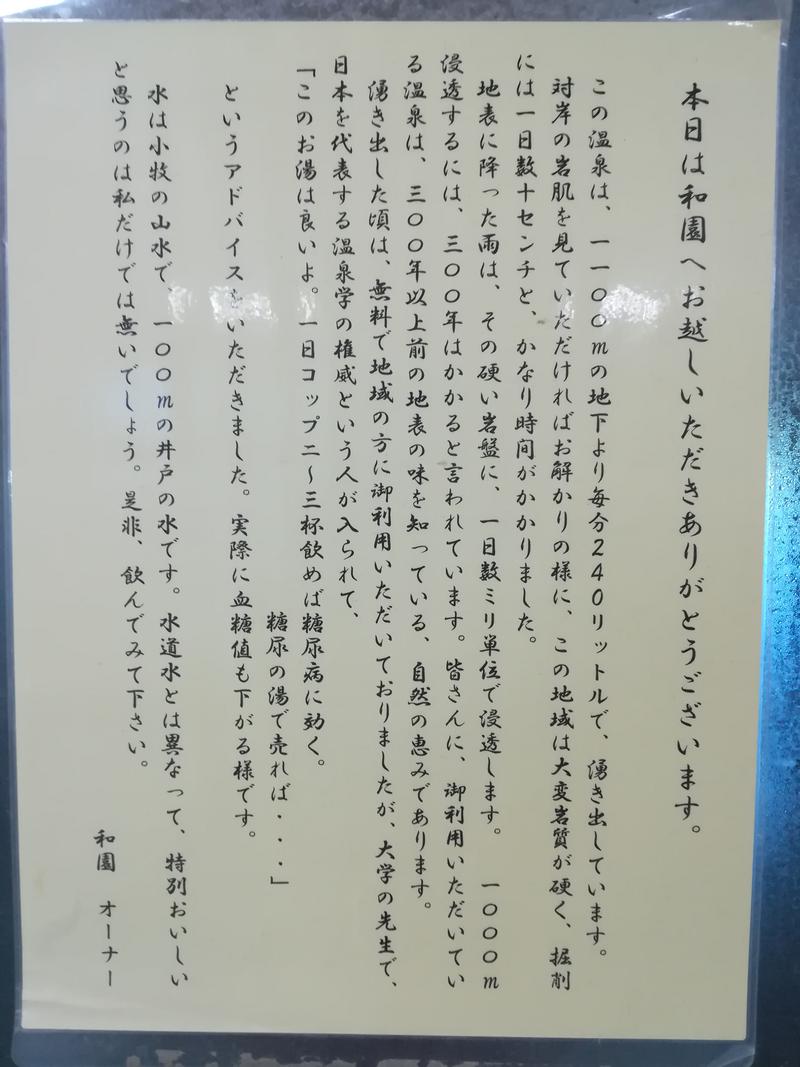 本日は和園へお越しいただきありがとうございます。
この温泉は、一一〇〇mの地下より毎分240リットルで、湧き出しています。
対岸の岩肌を見ていただければお解かりの様に、この地域は大変岩質が硬く、掘削
には一日数十センチと、かなり時間がかかりました。
地表に降った雨は、その硬い岩盤に、一日数ミリ単位で浸透します。一〇〇〇m
浸透するには、三〇〇年はかかると言われています。皆さんに、御利用いただいてい
る温泉は、三〇〇年以上前の地表の味を知っている、自然の恵みであります。
湧き出した頃は、無料で地域の方に御利用いただいておりましたが、大学の先生で、
日本を代表する温泉学の権威という人が入られて、
「このお湯は良いよ。一日コップ二～三杯飲めば糖尿病に効く。
糖尿の湯で売れば・・・」
というアドバイスをいただきました。実際に血糖値も下がる様です。
水は小牧の山水で、一〇〇mの井戸の水です。水道水とは異なって、特別おいしい
と思うのは私だけでは無いでしょう。是非、飲んでみて下さい。
和園 オーナー